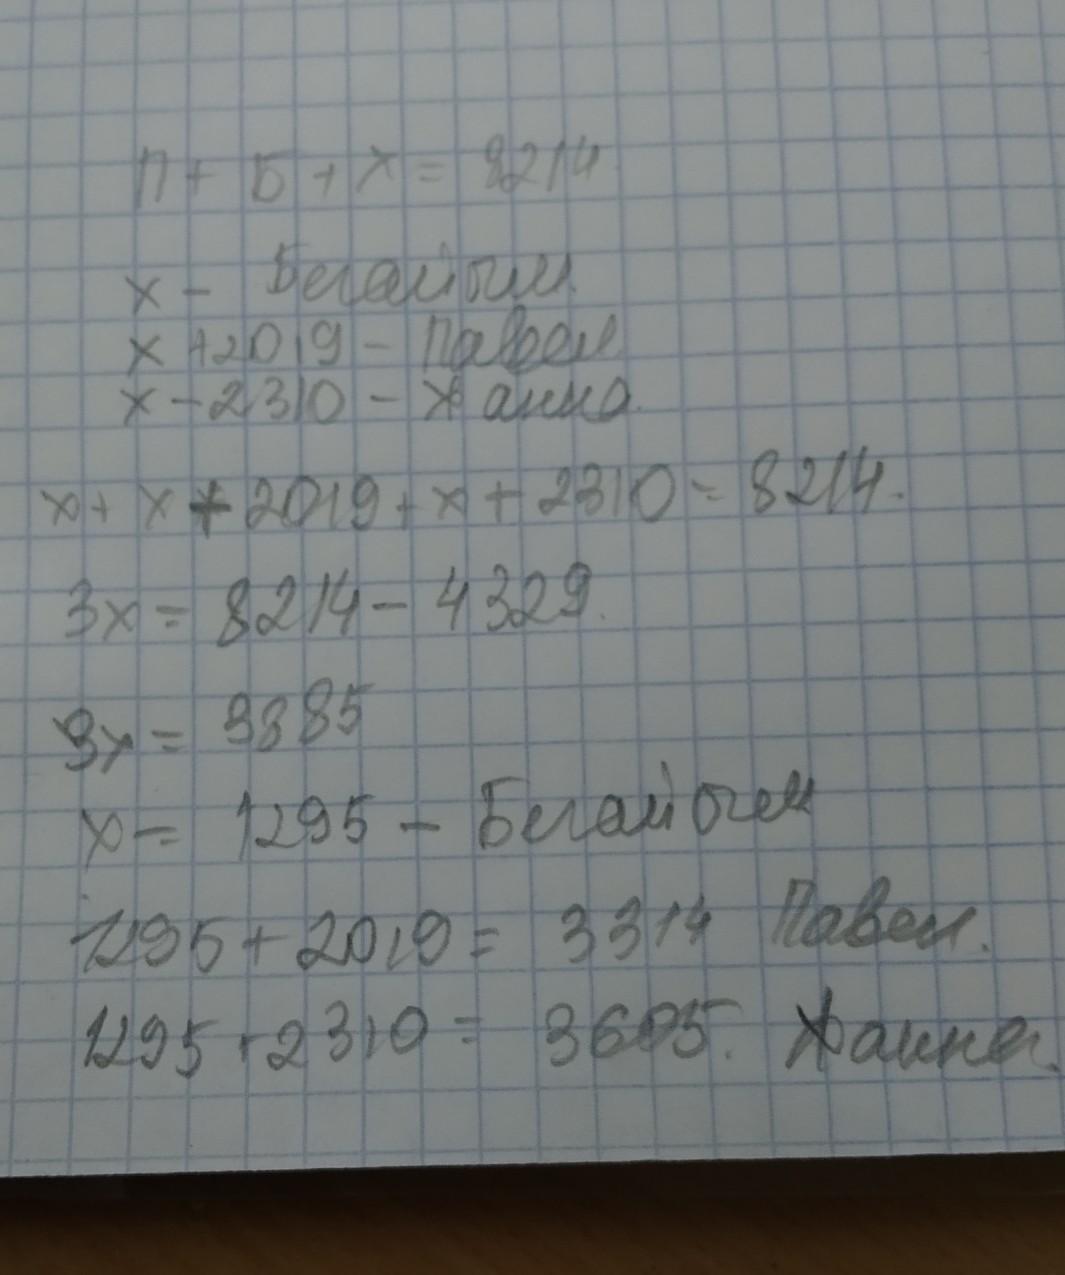 П + Б + Ж = 8214
х - Бегайым
х + 2019 - Павел
х - 2310 - Жанна.
х + х + 2019 + х + 2310 = 8214.
3х = 8214 - 4329.
3х = 3885
х = 1295 - Бегайым
1295 + 2019 = 3314 Павел.
1295 + 2310 = 3605. Жанна.